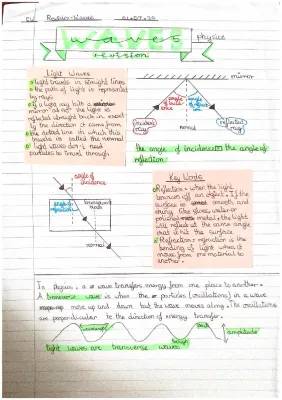 waves
physics
revision
Light Waves
light travels in straight lines
the path of light is represented
by rays
if a light ray hits a
mirror at 90° the light is
reflected straight back in exactly
the direction it came from
the dotted line in which this
travels is called the normal
light waves don't need
particles to travel through
mirror
angle of incidence
angle of reflection
incident ray
normal
reflected ray
the angle of incidence = the angle of
reflection
angle of
incidence
transparent
block
angle of refraction
normal
Key Words
Reflection - when the light
bounces off an object. If the
surface is smooth and
shiny like glass, water or
polished metal, the light
will reflect at the same angle
that it hit the surface
Refraction - refraction is the
bending of light when it
moves from one material to
another
In Physics, a wave transfers energy from one place to another.
A transverse wave is when the particles (oscillations) in a wave
move up and down but the wave moves along. The oscillations
are perpendicular to the direction of energy transfer.
wavelength
peak
amplitude
trough
light waves are transverse waves